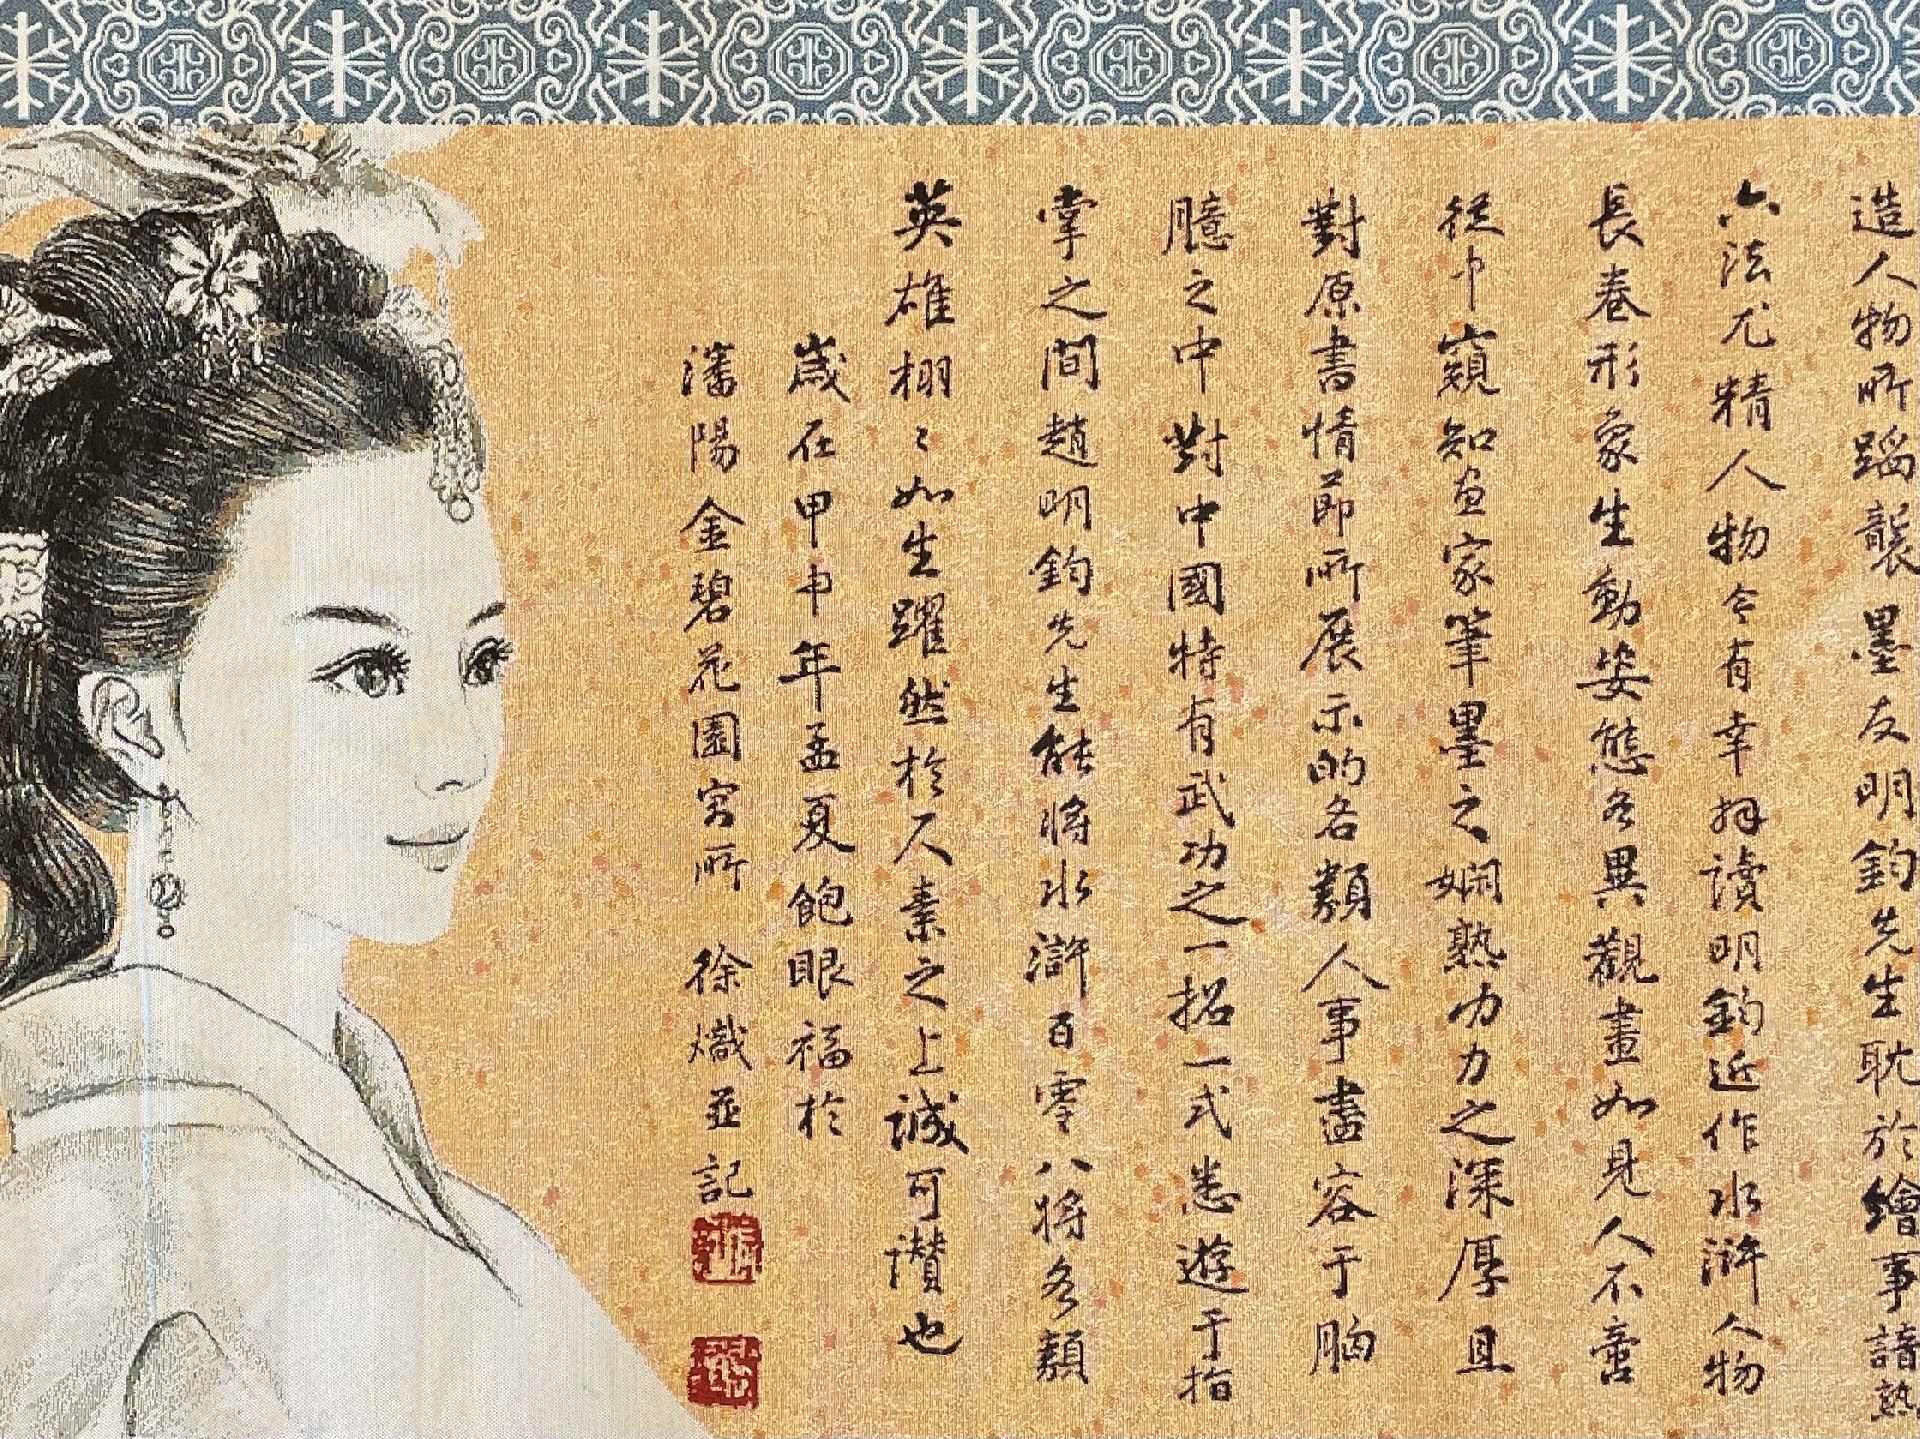 造人物所蹈襲墨友明鈞先生耽於繪事諳熟
六法尤精人物今有幸拜讀明鈞近作水滸人物
長卷形象生動姿態各異觀畫如見人不啻
從中窺知画家筆墨之嫻熟功力之深厚且
對原書情節所展示的各類人事盡容于胸
臆之中對中國特有武功之一招一式悉遊于指
掌之間趙明鈞先生能將水滸百零八將各類
英雄栩〻如生躍然於尺素之上誠可讚也
歲在甲申年孟夏飽眼福於
瀋陽金碧花園寓所 徐熾並記